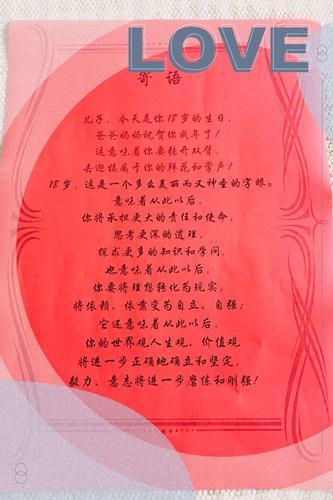 LOVE
寄 语
儿子，今天是你18岁的生日，
爸爸妈妈祝贺你成年了！
这意味着你要张开双臂，
去迎接属于你的鲜花和掌声！
18岁，这是一个多么美丽而又神圣的字眼。
意味着从此以后，
你将承担更大的责任和使命，
思考更深的道理，
探求更多的知识和学问，
也意味着从此以后，
你要将理想转化为现实，
将依赖、依靠变为自立、自强；
它还意味着从此以后，
你的世界观人生观、价值观
将进一步正确地确立和坚定，
毅力、意志将进一步磨练和刚强！